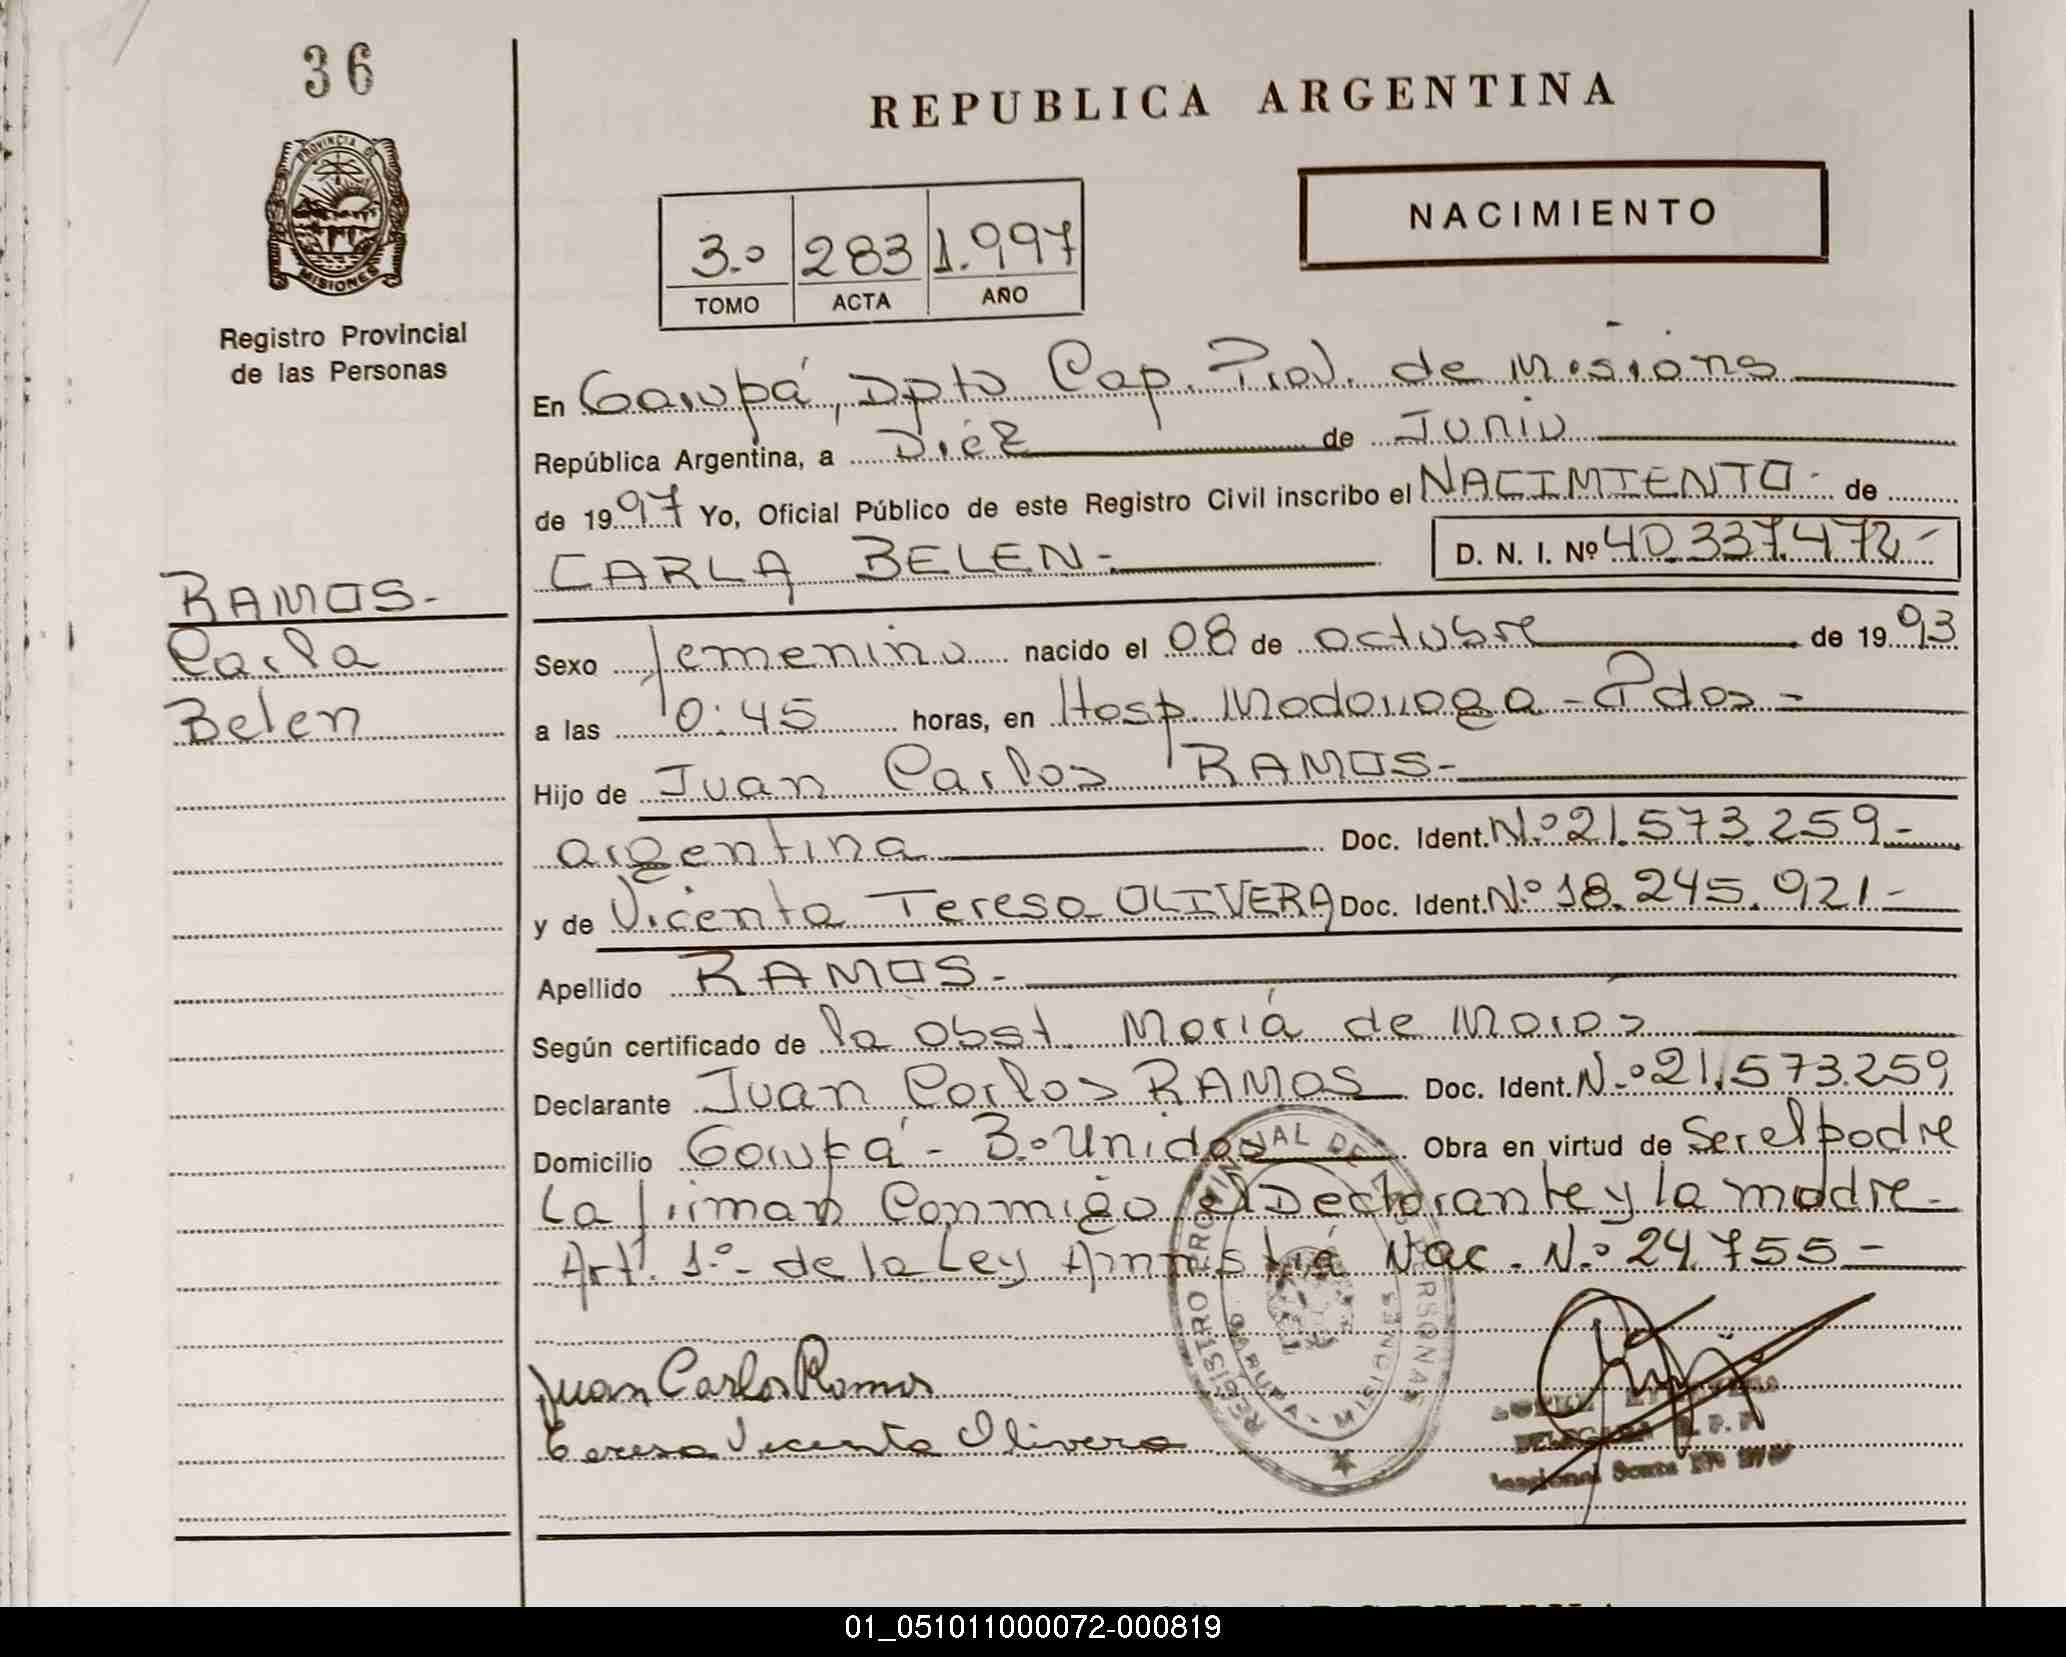 36
REPUBLICA ARGENTINA
PROVINCIA DE
MISIONES
NACIMIENTO
3.º 283 1.997
TOMO ACTA AÑO
Registro Provincial
de las Personas
En Garupá, Dpto Cap. Prov. de Misions
República Argentina, a Diéz de Junio
de 1997 Yo, Oficial Público de este Registro Civil inscribo el NACIMIENTO- de
CARLA BELEN- D. N. I. Nº 40.337.472-
RAMOS-
Carla
Belen
Sexo femenino nacido el 08 de octubre de 1993
a las 10:45 horas, en Hosp. Madariaga - Pdas -
Hijo de Juan Carlos RAMOS-
argentina Doc. Ident. N.º 21.573.259-
y de Vicenta Teresa OLIVERA Doc. Ident. Nº 18.245.921-
Apellido RAMOS-
Según certificado de la obst. María de
Declarante Juan Carlos RAMOS Doc. Ident. N.º 21.573.259
Domicilio Garupá - B.º Unidos Obra en virtud de Ser el padre
La firman Conmigo el Declarante y la madre-
Art. 1.º- de la Ley Amnistía Nac. N.º 24.755-
Juan Carlos Ramos
Teresa Vicenta Olivera
REGISTRO PROVINCIAL DE LAS PERSONAS
GARUPA - MISIONES
DELEGADA R. P. P.
01_051011000072-000819